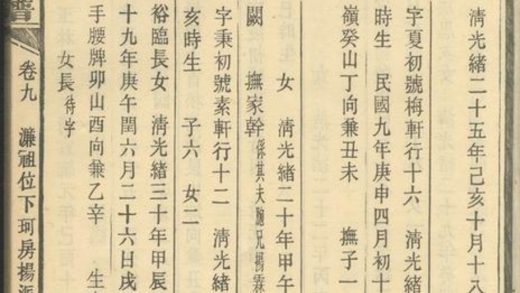 清光緒二十五年己亥十月十八
字夏初號梅軒行十六 清光緒
時生 民國九年庚申四月初十
嶺癸山丁向兼丑未 撫子一
女 清光緒二十年甲午
闕 撫家幹 係其夫胞兄楊霖
字秉初號素軒行十二 清光緒
亥時生 子六 女二
裕臨長女 清光緒三十年甲辰
十九年庚午閏六月二十六日戌
手腰牌卯山酉向兼乙辛 生
女長 待字
卷九 濂祖位下珂房楊派
譜